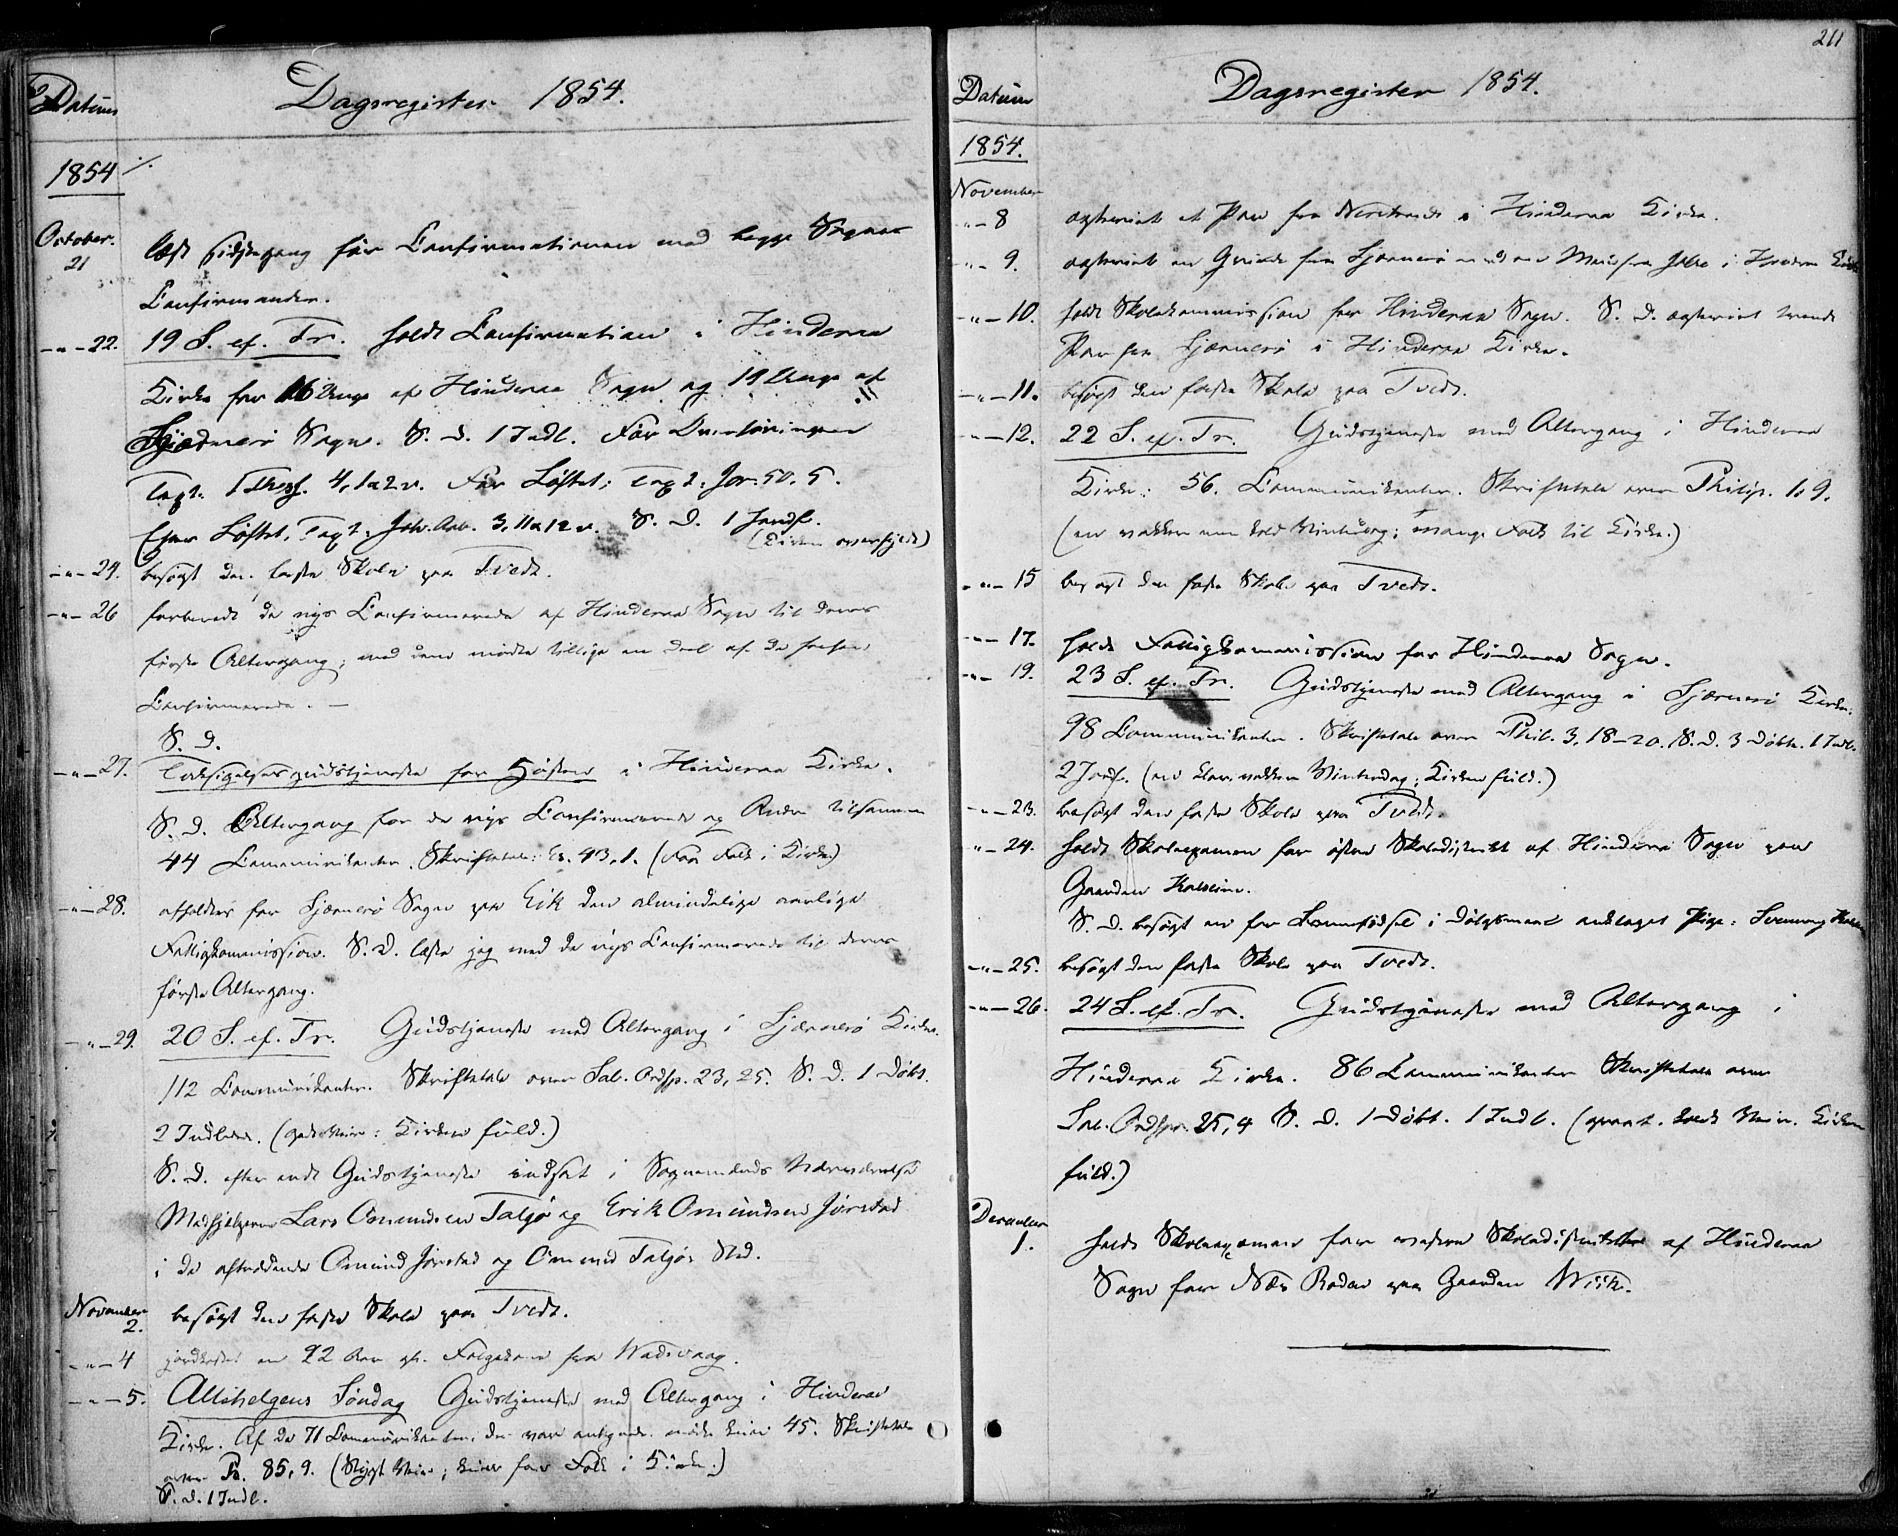 Datum Dagsregister 1854.
1854
October.
21 læst sidstegang før Confirmationen med begge Sognes
Confirmander.
-"-22. 19 S. ef. Tr. holdt Confirmation i Hinderaa
Kirke for 16 Unge af Hinderaa Sogn og 19 Unge af
Sjærnerö Sogn. S. D. 1 Indl. Før Overhöringen
Text: 1 Thess. 4, 1 a 2 v. Før Løftet; Text: Jer. 50. 5.
Efter Løftet, Text: Joh. Aab. 3, 11 a 12 v. S. D. 1 Jordf.
(Kirken overfyldt)
-"-24. besøgt den faste Skole paa Tvedt.
-"-26 forberedt de nys Confirmerede af Hinderaa Sogn til deres
første Altergang; med dem mødte tillige en Deel af de forhen
Confirmerede. —
S. D.
-"-27. Taksigelsesgudstjeneste for Høsten i Hinderaa Kirke.
S. D. Altergang for de nys Confirmerede og Andre tilsammen
44 Communikanter. Skriftetale: Es. 43, 1. (Faa Folk i Kirke)
-"-28. afholdtes for Sjærnerö Sogn paa Eik den almindelige aarlige
Fattigkommission. S. D. læste jeg med de nys Confirmerede til deres
første Altergang.
-"-29. 20 S. ef. Tr. Gudstjeneste med Altergang i Sjærnerö Kirke.
112 Communikanter. Skriftetale over Sal. Ordsp. 23, 25. S. D. 1 Døbt.
2 Indledte. (godt Veir: Kirken fuld.)
S. D. efter endt Gudstjeneste indsat i Sognemænds Nærværelse
Medhjelperne Lars Omundsen Talgø og Erik Omundsen Jørstad
i de aftrædende Omund Jørstad og Omund Talgøs Sted.
November
2. besøgt den faste Skole paa Tvedt.
-"-4 jordfæstet en 92 Aar gl. Folgekone fra Wadsvaag.
-"-5. Allehelgens Söndag Gudstjeneste med Altergang i Hinderaa
Kirke. Af de 71 Communikanter, der vare antegnede mødte kun 45. Skriftetale
over Ps. 85, 9. (Stygt Veir; kun faa Folk i Kirke.)
S. D. 1 Indl.
211
Datum Dagsregister 1854.
1854.
November
-"-8 ægteviet et Par fra Nerstrand i Hinderaa Kirke.
-"-9. ægteviet en Qvinde fra Sjærnerö med en Mand fra Jelse i Hinderaa Kirke
-"-10. holdt Skolekommission for Hinderaa Sogn. S. D. ægteviet trende
Par fra Sjærnerö i Hinderaa Kirke.
-"-11. besøgt den faste Skole paa Tvedt.
-"-12. 22 S. ef. Tr. Gudstjeneste med Altergang i Hinderaa
Kirke: 56. Communikanter. Skriftetale over Philip. 1, 9.
(en vakker men kold Vinterdag; mange Folk til Kirke.)
-"-15 besøgt den faste Skole paa Tvedt.
-"-17. holdt Fattigkommission for Hinderaa Sogn.
-"-19. 23 S. ef. Tr. Gudstjeneste med Altergang i Sjærnerö Kirke.
98 Communikanter. Skriftetale over Phil. 3, 18-20. S. D. 3 Døbte. 1 Indl.
2 Jordf. (en klar vakker Vinterdag; Kirken fuld.)
-"-23. besøgt den faste Skole paa Tvedt.
-"-24. holdt Skoleexamen for østre Skoledistrikt af Hinderaa Sogn paa
Gaarden
S. D. besøgt en for Barnefødsel i Dølgsmaal anklaget Pige:
-"-25. besøgt den faste Skole paa Tvedt.
-"-26. 24 S. ef. Tr. Gudstjeneste med Altergang i
Hinderaa Kirke. 86 Communikanter Skriftetale over
Sal. Ordspr. 25, 4 S. D. 1 Døbt. 1 Indl. (smukt, koldt Veir. Kirken
fuld.)
December
1. holdt Skoleexamen for vestre Skoledistrikt af Hinderaa
Sogn for Næs Roden paa Gaarden Wiik.